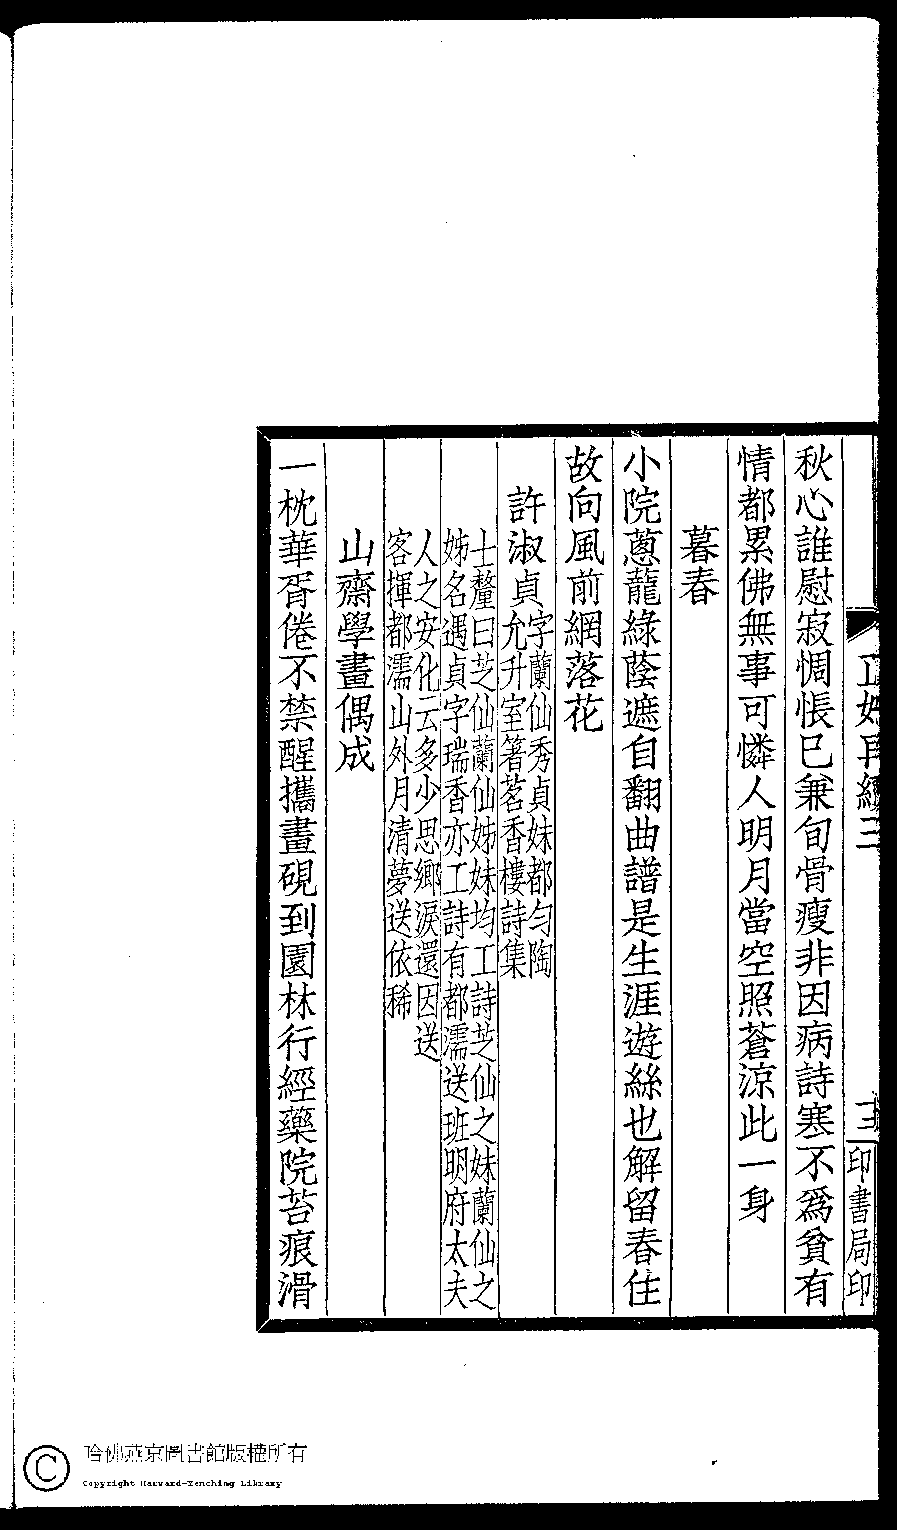 秋心誰慰寂惆悵已兼旬骨瘦非因病詩寒不爲貧有
情都累佛無事可憐人明月當空照蒼涼此一身
暮春
小院蔥蘢綠蔭遮自翻曲譜是生涯遊絲也解留春住
故向風前網落花
許淑貞
字蘭仙秀貞妹都勻陶
允升室箸茗香樓詩集
士釐曰芝仙蘭仙姊妹均工詩芝仙之妹蘭仙之
姊名遇貞字瑞香亦工詩有都濡送班明府太夫
人之安化云多少思鄉淚還因送
客揮都濡山外月清夢送依稀
山齋學畫偶成
一枕華胥倦不禁醒攜畫硯到園林行經藥院苔痕滑
印書局印
哈佛燕京圖書館版權所有
Copyright Harvard-Yenching Library